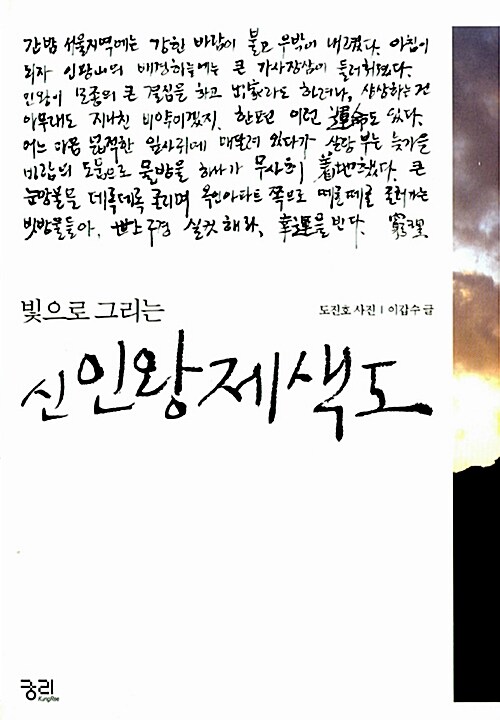 간밤 서울지역에는 강한 바람이 불고 우박이 내렸다. 아침이
되자 인왕산의 배경하늘에는 큰 가사장삼이 둘러쳐졌다.
인왕이 모종의 큰 결심을 하고 出家라도 하려나, 상상하는 건
아무래도 지나친 비약이겠지. 한편 이런 運命도 있다.
어느 마른 잎사귀에 매달려 있다가 살랑 부는
바람의 도움으로 물방울 하나가 무사히 着地했다. 큰
눈망울을 데록데록 굴리며 옥인아파트 쪽으로 떼굴떼굴 굴러가는
빗방울들아, 世上구경 실컷 해라, 幸運을 빈다. 窮理
빛으로 그리는
도진호 사진 | 이갑수 글
신인왕제색도
궁리
KungRee